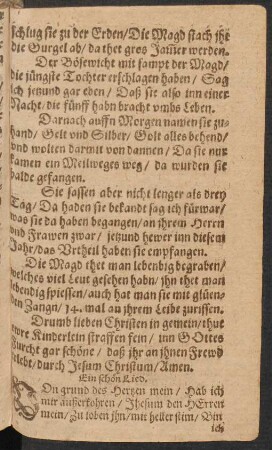 schlug sie zu der Erden/ Die Magd stach jhr
die Gurgel ab/ da thet gros Jamer werden.
Der Bösewicht mit sampt der Magd/
die jüngste Tochter erschlagen haben/ Sag
ich jetzund gar eben/ Daß sie also inn einer
Nacht/ die fünff habn bracht vmbs Leben.
Darnach auffn Morgen namen sie zu-
hand/ Gelt vnd Silber/ Golt alles behend/
vnd wolten darmit von dannen/ Da sie nur
kamen ein Meilweges weg/ da wurden sie
balde gefangen.
Sie sassen aber nicht lenger als drey
Tag/ Da haden sie bekandt sag ich fürwar/
was sie da haben begangen/ an jhrem Heren
vnd Frawen zwar/ jetzund hewer inn diesem
Jahr/ das Vrtheil haben sie empfangen.
Die Magd thet man lebendig begraben/
welches viel Leut gesehen habn/ jhn thet man
lebendig spiessen/ auch hat man sie mit glüen-
den Zangn/ 14. mal an jhrem Leibe zurissen.
Drumb lieben Christen in gemein/ thut
ewre Kinderlein straffen fein/ inn GOttes
Furcht gar schöne/ daß jhr an jhnen Frewd
erlebt/ durch Jesum Christum/ Amen.
Ein schön Lied.
On grund des Hertzen mein/ Hab ich
mir außerkohren/ Jhesum den HErren
mein/ Zu loben jhn/ mit heller stim/ Bin
ich